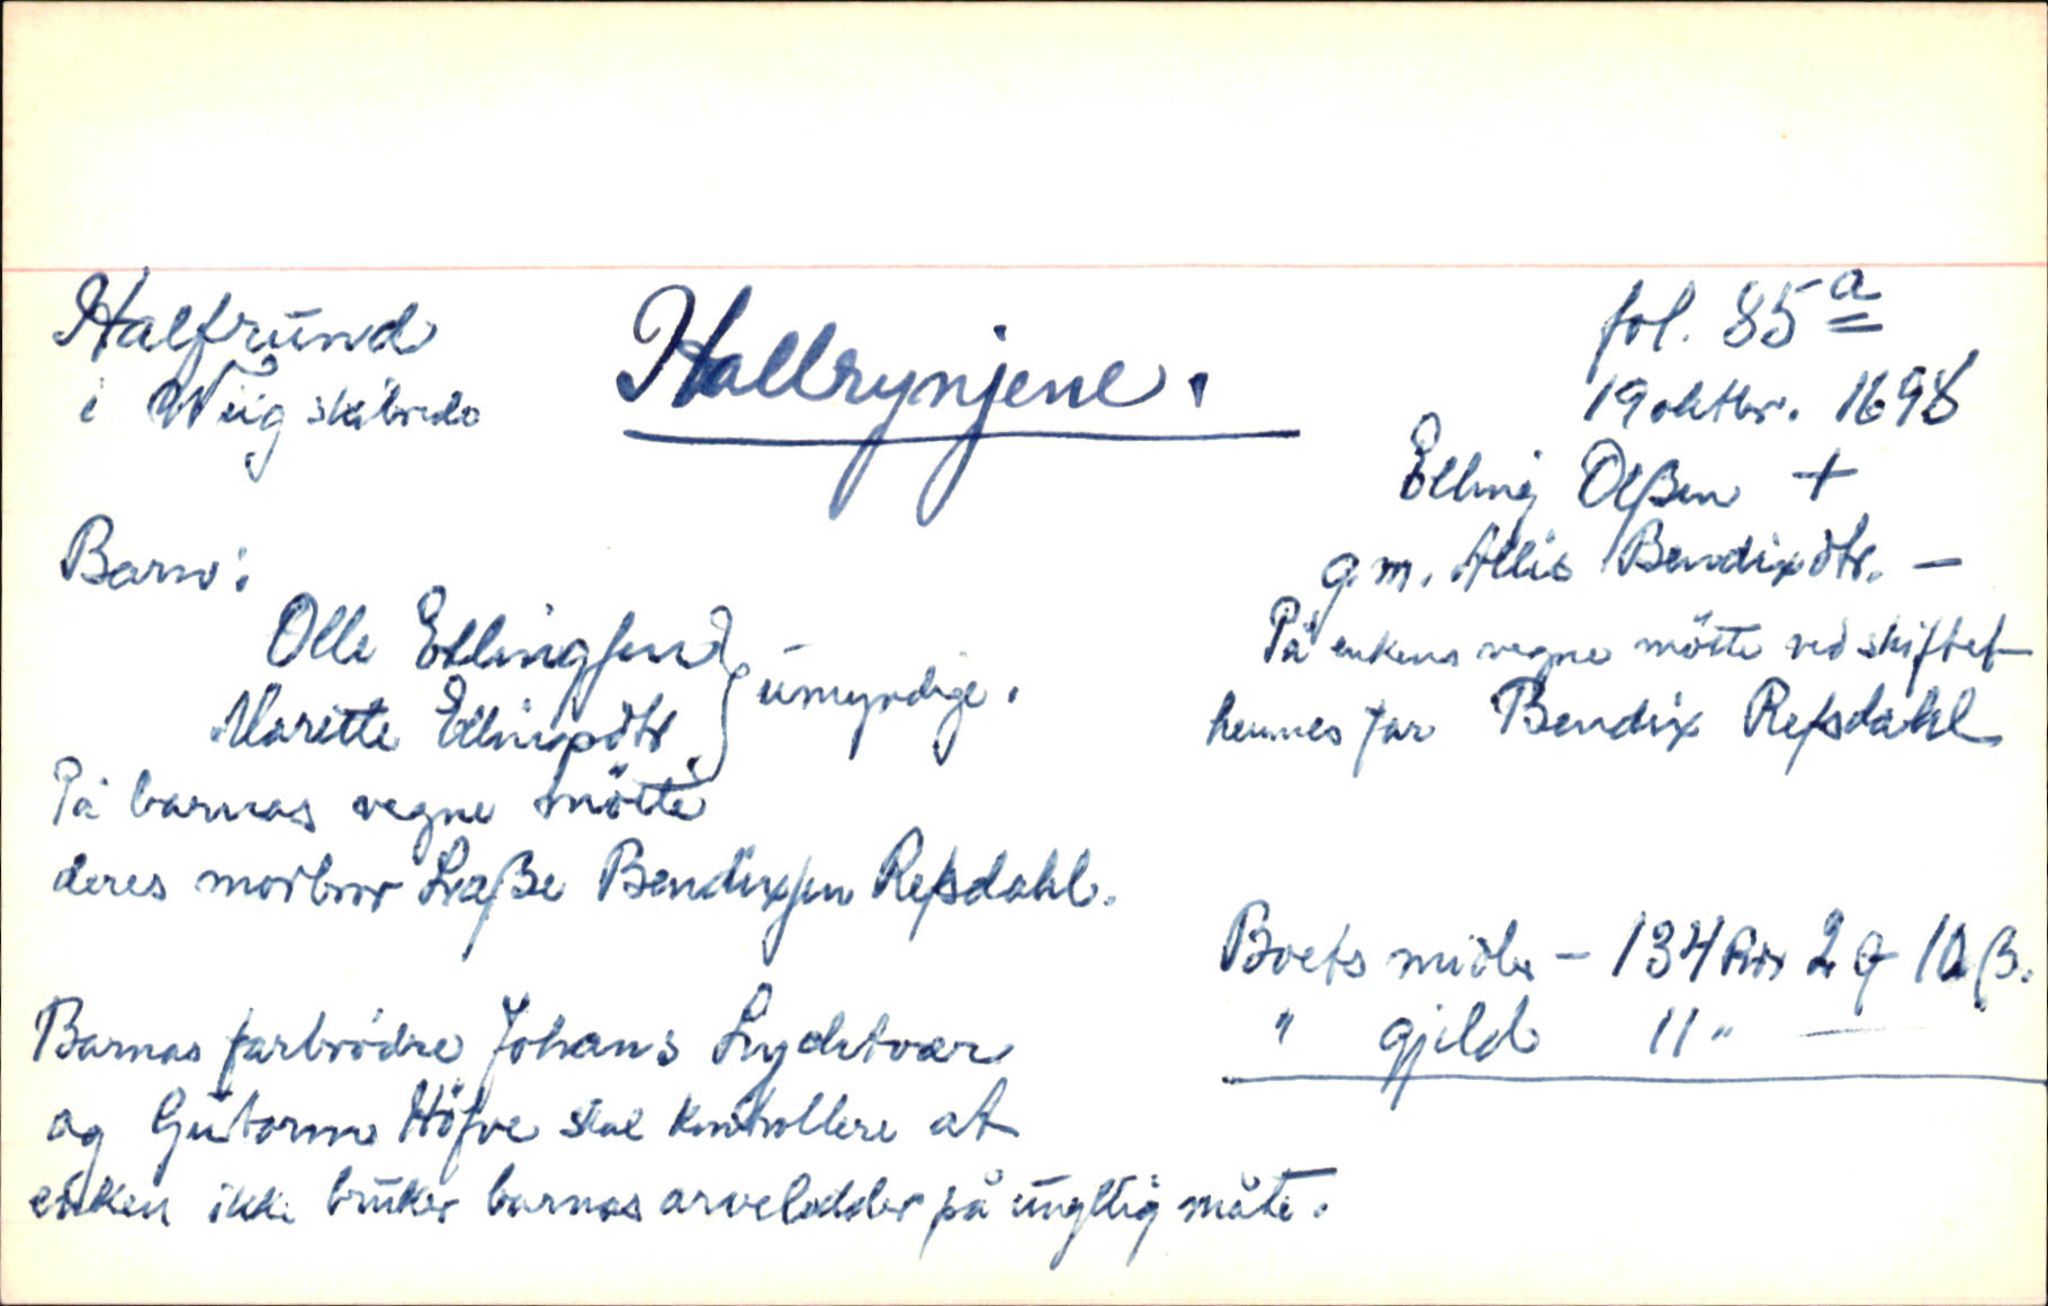 Halfrund
i Wiig skibrede
Hallrynjene.
fol. 85 a
19 oktbr. 1698
Elling Olßen +
gm. Allis Bendixdtr. —
På enkens vegne mötte ved skiftet
hennes far Bendix Refsdahl
Barn:
Olle Ellingsen
Maritte Ellingsdtr.
} umyndige.
På barnas vegne mötte
deres morbror Laße Bendixsen Refsdahl.
Boets midler — 134 Rdr 2 ꝗ 10 β.
" gjeld 11 " —
Barnas farbrödre Johans
og Gutorm Höfve skal kontrollere at
enken ikke bruker barnas arvelodder på ugyldig måte.